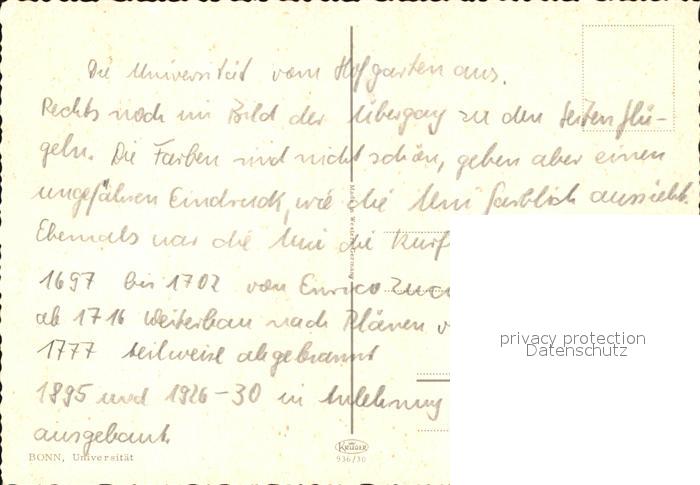 Die Universität vom Hofgarten aus.
Rechts noch im Bild der Übergang zu den Seitenflü-
geln. Die Farben sind nicht schön, geben aber einen
ungefähren Eindruck, wie die Uni farblich aussieht.
Ehemals war die Uni die Kurf
1697 bis 1702 von Enrico Zucc
ab 1716 Weiterbau nach Plänen v
1777 teilweise abgebrannt
1895 und 1926-30 in Anlehnung
ausgebaut.
BONN, Universität
KRÜGER
936/30
Made in Western Germany
privacy protection
Datenschutz